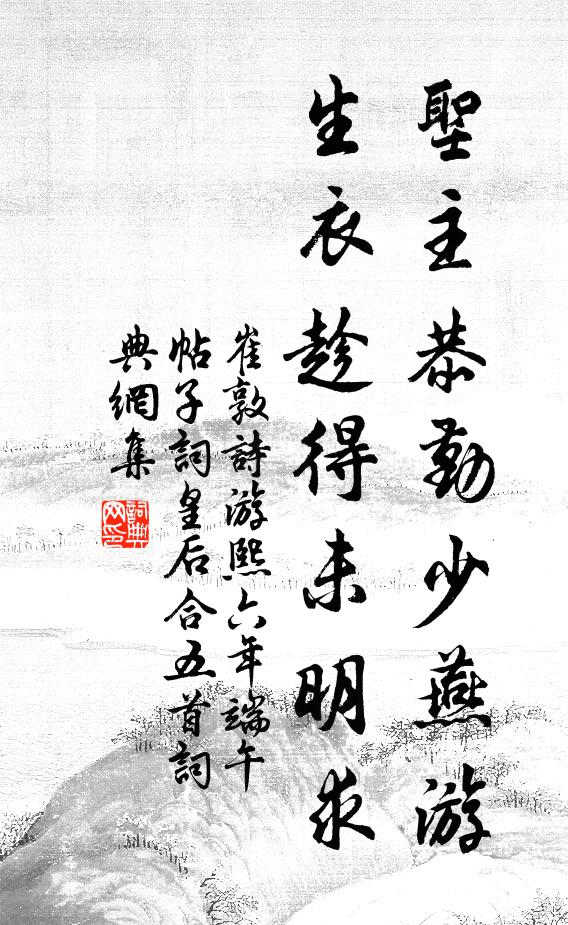 聖主恭勤少燕游
生衣趁得未明求
崔敦詩游熙六年端午
帖子詞皇后合五首詞
典網集
詞典網印